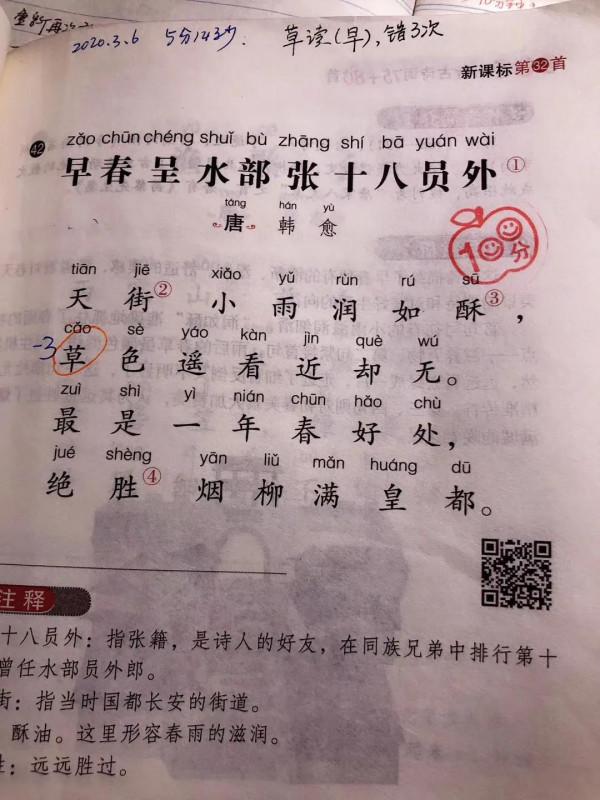 重新再次
2020.3.6 5分14秒 草读(早),错3次
新课标第32首
zǎo chūn chéng shuǐ bù zhāng shí bā yuán wài
42 早春呈水部张十八员外①
táng hán yù
唐 韩愈
100分
tiān jiē xiǎo yǔ rùn rú sū
天街②小雨润如酥③,
cǎo sè yáo kàn jìn què wú
-3 草色遥看近却无。
zuì shì yì nián chūn hǎo chù
最是一年春好处,
jué shèng yān liǔ mǎn huáng dū
绝胜④烟柳满皇都。
注释
十八员外:指张籍,是诗人的好友,在同族兄弟中排行第十
曾任水部员外郎。
街:指当时国都长安的街道。
酥油。这里形容春雨的滋润。
胜:远远胜过。